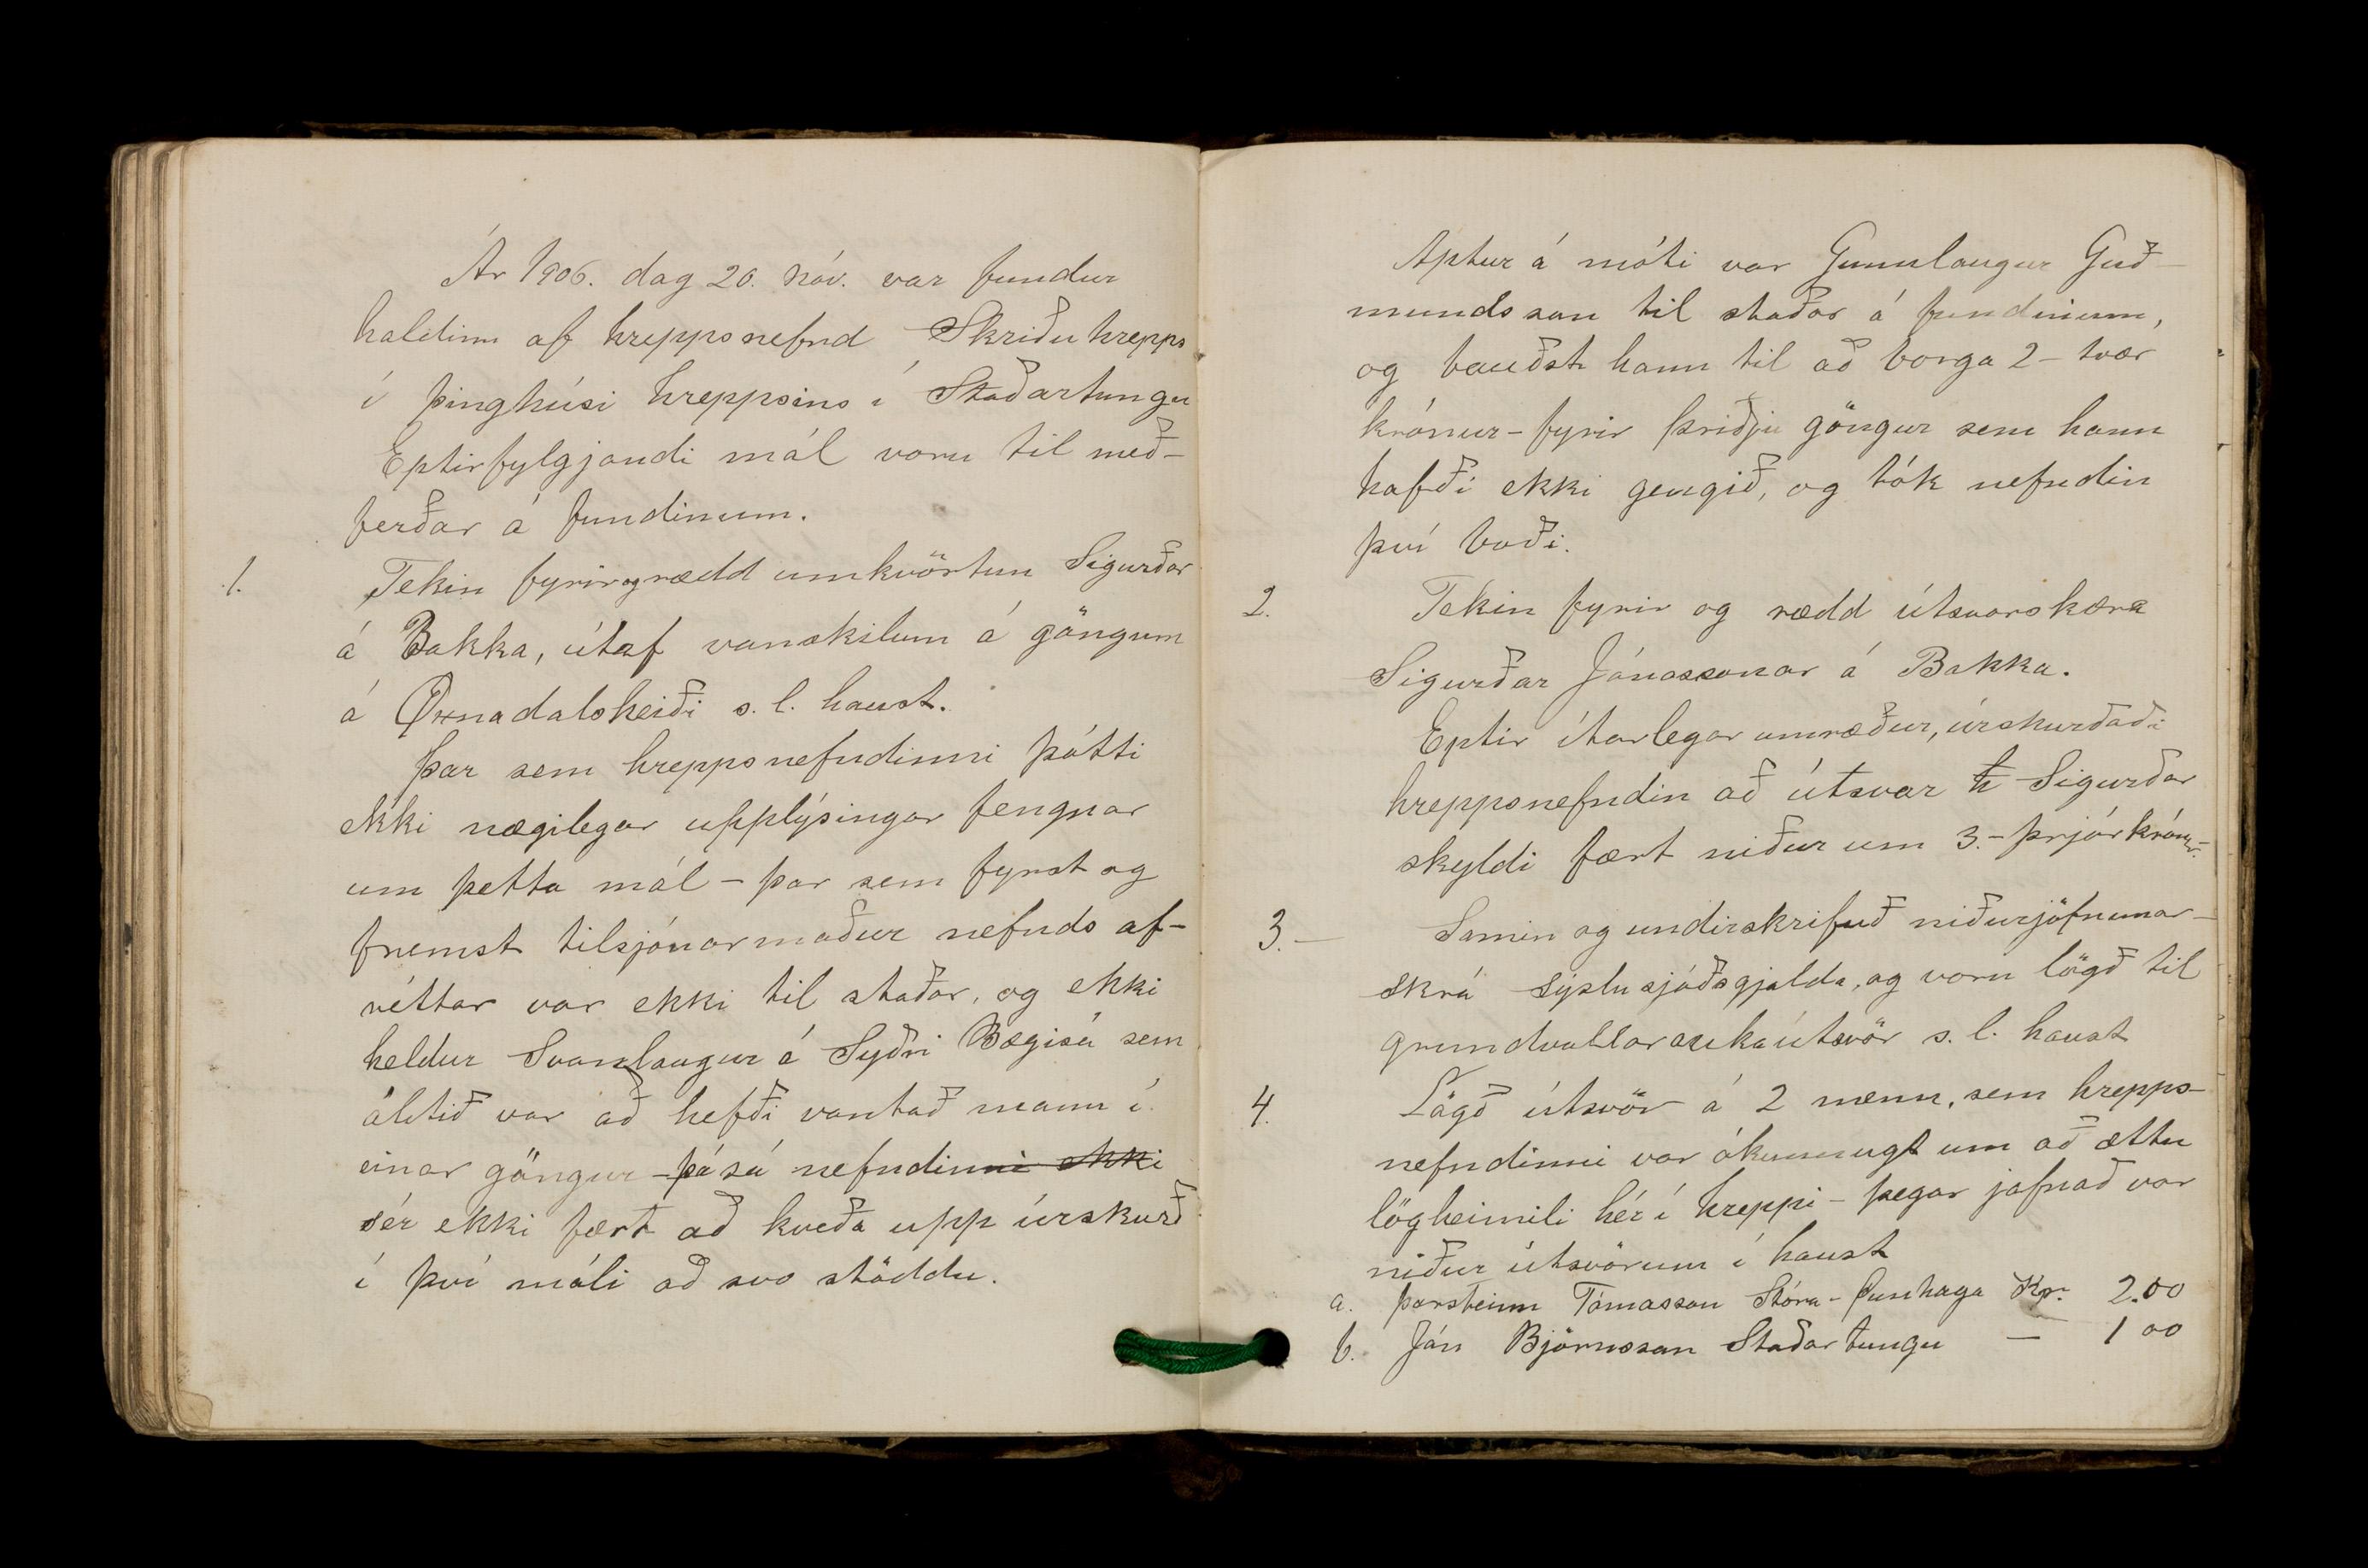 Ár 1906. dag 20. Nóv. var fundur
haldinn af hreppsnefnd Skriðuhrepps
í þinghúsi hreppsins í Staðartungu
Eptirfylgjandi mál voru til með-
ferðar á fundinum.
1. Tekin fyrir og rædd umkvörtun Sigurðar
á Bakka, útaf vanskilum á göngum
á Öxnadalsheiði s. l. haust.
Þar sem hreppsnefndinni þótti
ekki nægilegar upplýsingar fengnar
um þetta mál - þar sem fyrst og
fremst tilsjónarmaður nefnds af-
réttar var ekki til staðar, og ekki
heldur Svanlaugur á Syðri Bægisá sem
áltið var að hefði vantað mann í
einar göngur - þá sá nefndinni ekki
sér ekki fært að kveða upp úrskurð
í því máli að svo stöddu.
Aptur á móti var Gunnlaugur Guð-
mundsson til staðar á fundinum,
og bauðst hann til að borga 2 - tvær
krónur - fyrir þriðju göngur sem hann
hafði ekki gengið, og tók nefndin
því boði.
2. Tekin fyrir og rædd útsvarskæra
Sigurðar Jónassonar á Bakka.
Eptir ítarlegar umræður, úrskurðaði
hreppsnefndin að útsvar Sigurðar
skyldi fært niður um 3. - þrjár krónur. -
3. - Samin og undirskrifuð niðurjöfnunar-
skrá sýslusjóðsgjalda, og voru lögð til
grundvallar aukaútsvör s. l. haust
4. Lögð útsvör á 2 menn, sem hrepps-
nefndinni var ókunnugt um að ættu
lögheimili hér í hreppi - þegar jafnað var
niður útsvörum í haust
a. Þorsteinn Tómasson Stóra-Dunhaga Kr. 2.00
b. Jón Björnsson Staðartungu — 1 00